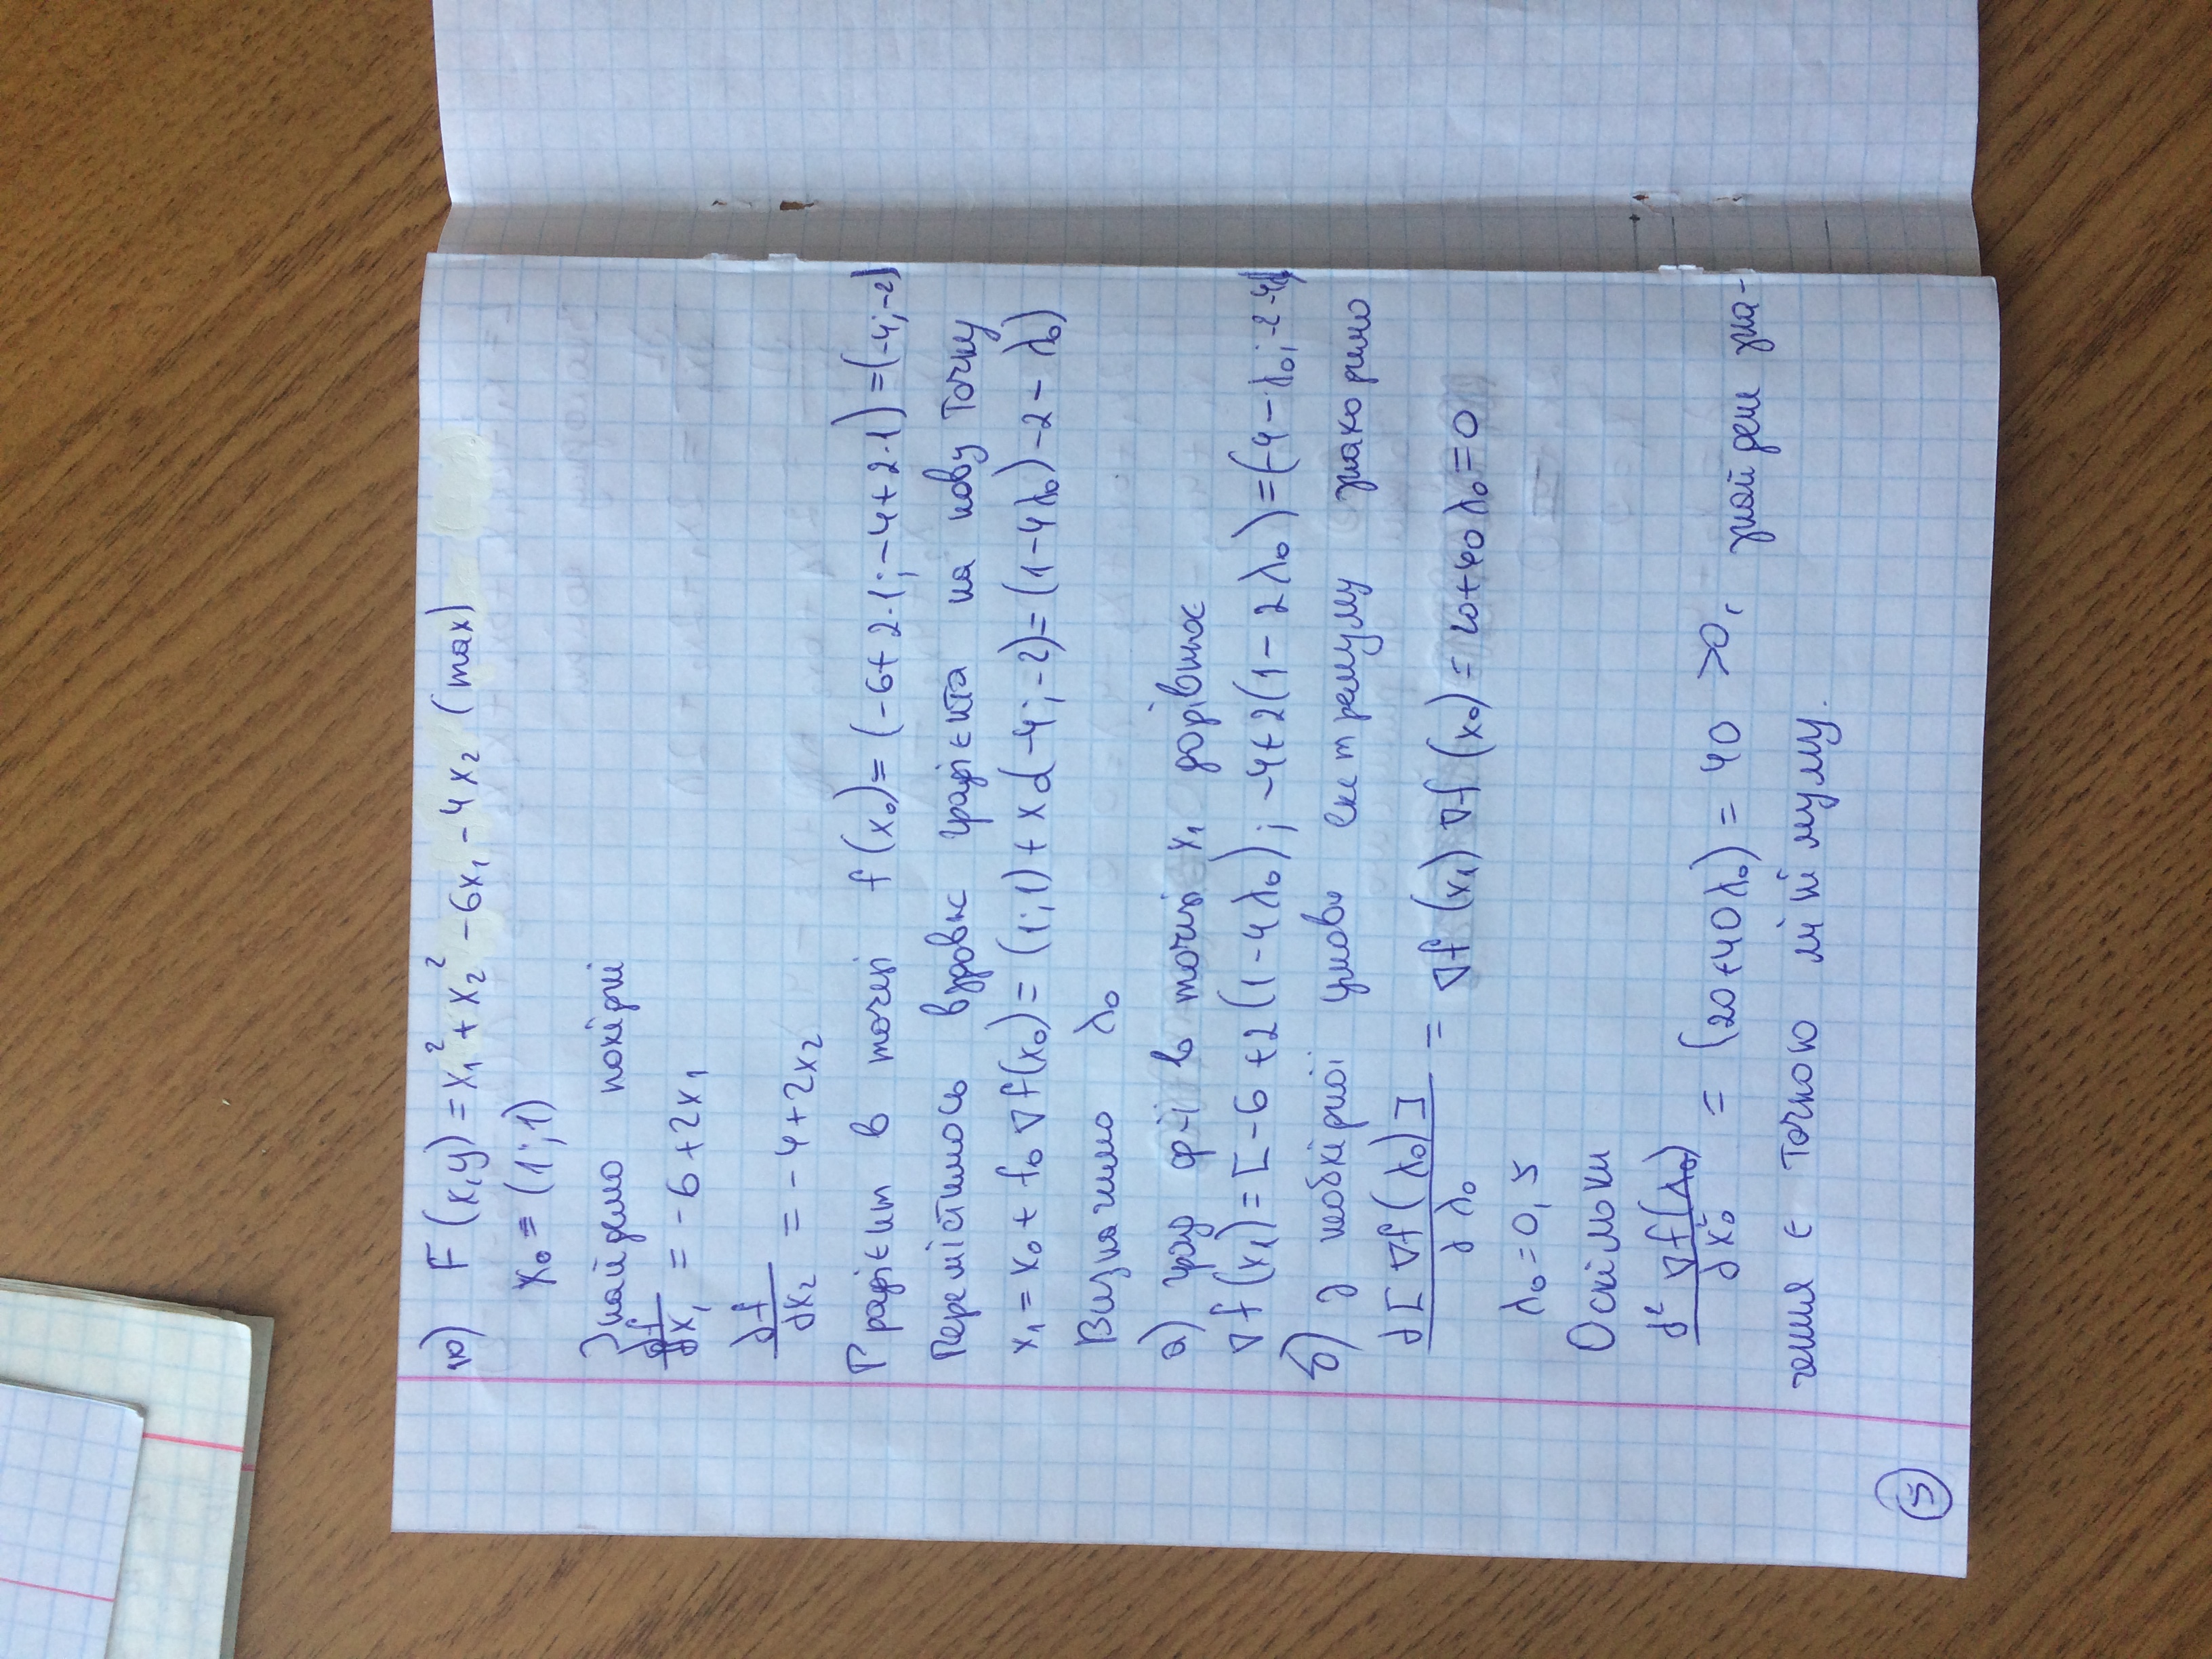 10) F(x,y) = x₁² + x₂² - 6x₁ - 4x₂ (max)
x₀ = (1;1)
Знайдемо похідні
∂f/∂x₁ = -6+2x₁
∂f/∂x₂ = -4+2x₂
Градієнт в точці f(x₀) = (-6+2·1; -4+2·1) = (-4;-2)
Перемістимось вздовж градієнта на нову точку
x₁ = x₀ + f₀ ∇f(x₀) = (1;1) + x d(-4;-2) = (1-4λ₀) -2 - λ₀)
Визначимо λ₀
а) град ф-ії в точці x₁ дорівнює
∇f(x₁) = [-6+2(1-4λ₀); -4+2(1-2λ₀) = (-4-λ₀; -2-4λ
б) з необхідної умови екстремуму знаходимо
d[∇f(λ₀)]/dλ₀ = ∇f(x₁) ∇f(x₀) = 20+40λ₀ = 0
λ₀ = 0,5
Оскільки
d² ∇f(λ₀)/dx₀² = (20+40λ₀) = 40 >0, знайдене зна-
чення є точкою мінімуму.
5